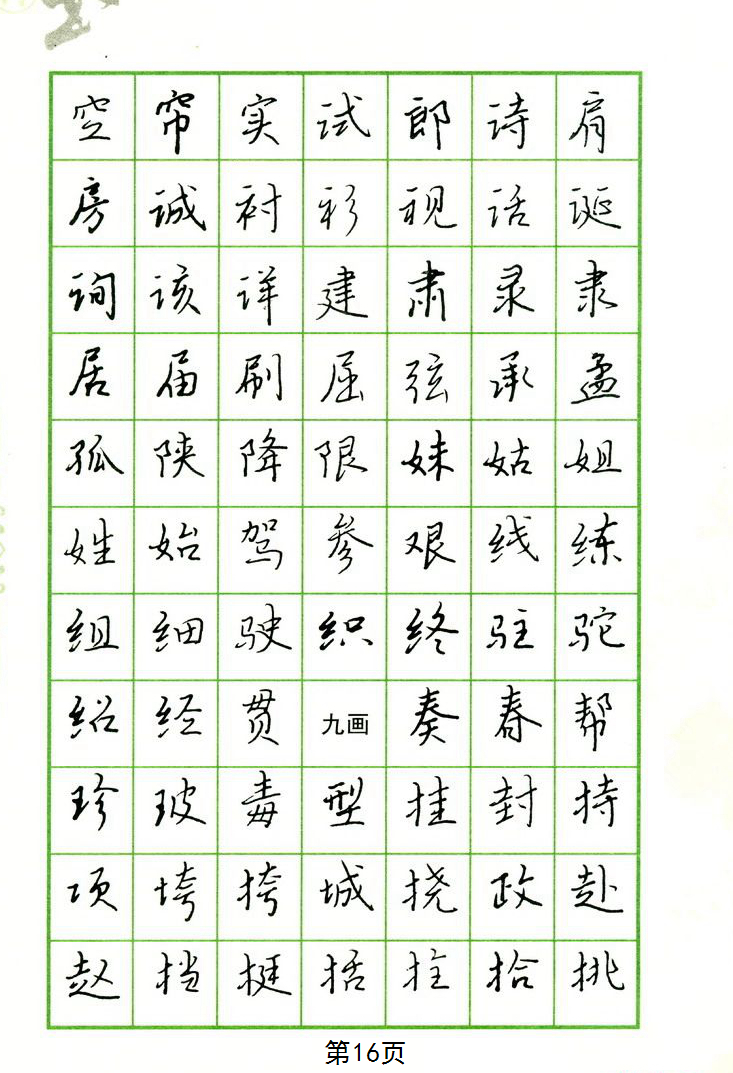 空帘实试郎诗肩
房诚衬衫视话诞
询该详建肃录隶
居届刷屈弦承孟
孤陕降限妹姑姐
姓始驾参艰线练
组细驶织终驻驼
绍经贯九画奏春帮
珍玻毒型挂封持
项垮挎城挠政赴
赵挡挺括拴拾挑
第16页